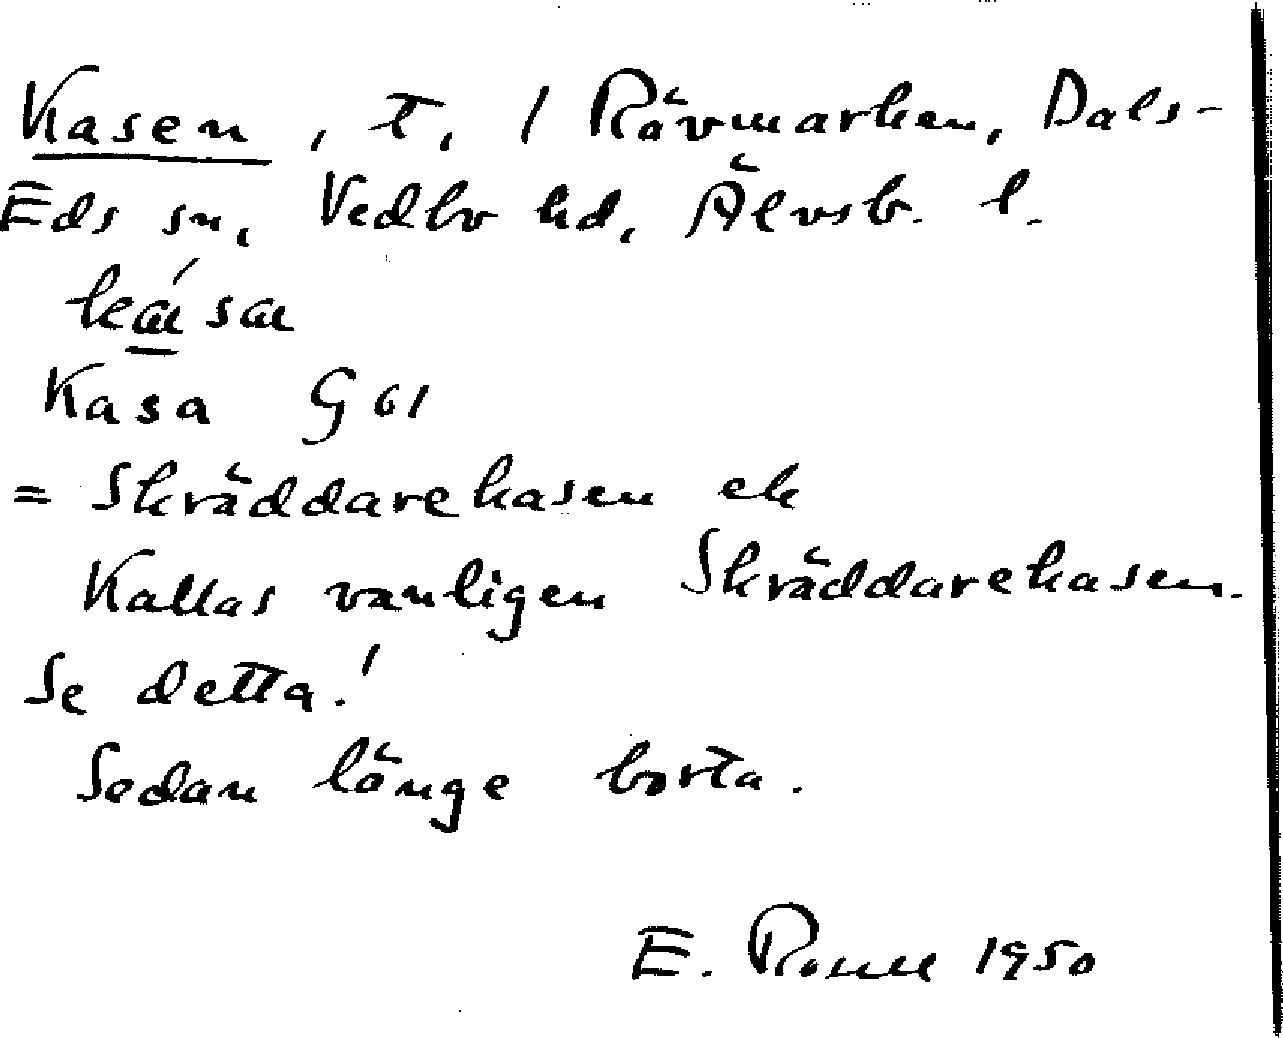 Kasen, t, / Rävmarken, Dals-
Eds sn, Vedbo hd, Älvsb. l.
Kasa G 61
= Skräddarekasen ek
Kallas vanligen Skräddarekasen.
Se detta!
Sedan länge borta.
E. 1950